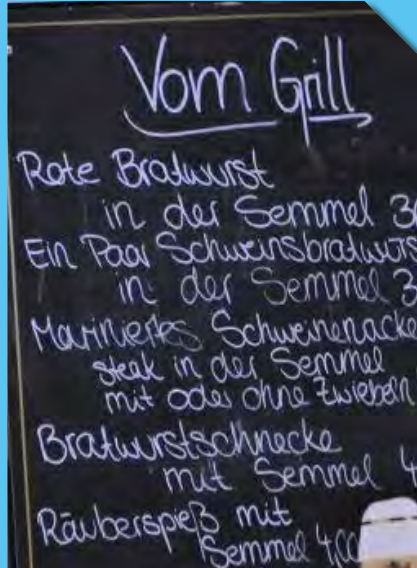 Vom Grill
Rote Bratwurst
in der Semmel
Ein Paar Schweinsbratwurs
in der Semmel
Mariniertes Schweinenacke
steak in der Semmel
mit oder ohne Zwiebeln
Bratwurstschnecke
mit Semmel 4
Räuberspieß mit
Semmel 4,00